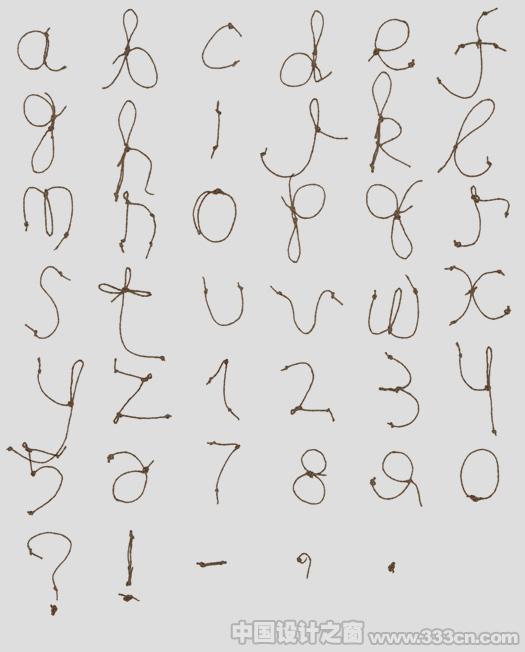 a b c d e f
g h i j k l
m n o p q r
s t u v w x
y z 1 2 3 4
5 6 7 8 9 0
? ! - , .
中国设计之窗 www.333cn.com